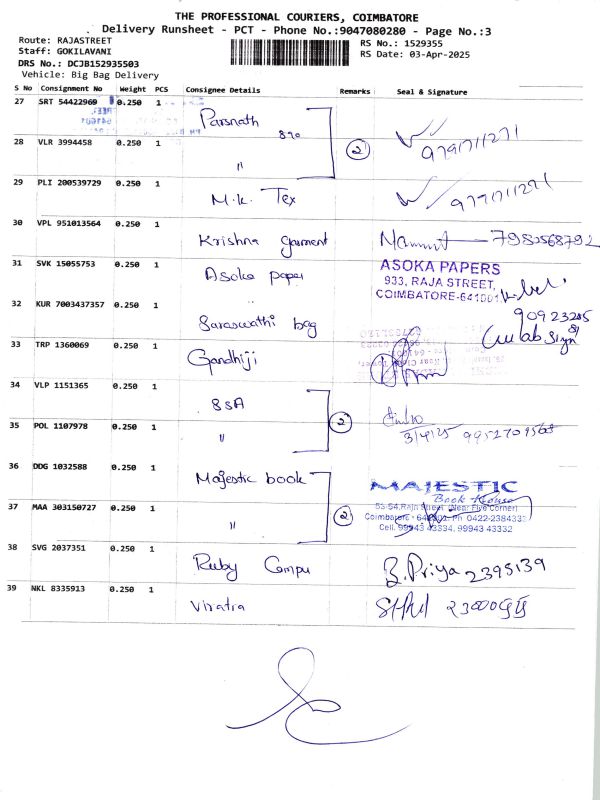 THE PROFESSIONAL COURIERS, COIMBATORE
Delivery Runsheet - PCT - Phone No.:9047080280 - Page No.:3
Route: RAJASTREET
Staff: GOKILAVANI
DRS No: DCJB152935503
Vehicle: Big Bag Delivery
RS No.: 1529355
RS Date: 03-Apr-2025
S No Consignment No Weight PCS Consignee Details Remarks Seal & Signature
27 SRT 54422969 0.250 1 Parsnath
28 VLR 3994458 0.250 1 " 2
29 PLI 200539729 0.250 1 M.K. Tex
30 VPL 951013564 0.250 1 Krishna garment
31 SVK 15055753 0.250 1 Asoka paper
ASOKA PAPERS
933, RAJA STREET,
COIMBATORE-641001
32 KUR 7003437357 0.250 1 Saraswathi bag
33 TRP 1360069 0.250 1 Gandhiji
34 VLP 1151365 0.250 1 SSA
35 POL 1107978 0.250 1 " 2
3/4/25
36 DDG 1032588 0.250 1 Majestic book
MAJESTIC
Book House
53-54, Raja Street (Near Five Corner)
37 MAA 303150727 0.250 1 " 2
Cell: 99943 43334, 99943 43332
38 SVG 2037351 0.250 1 Ruby Compu B.Priya 2395139
39 NKL 8335913 0.250 1 Viratra